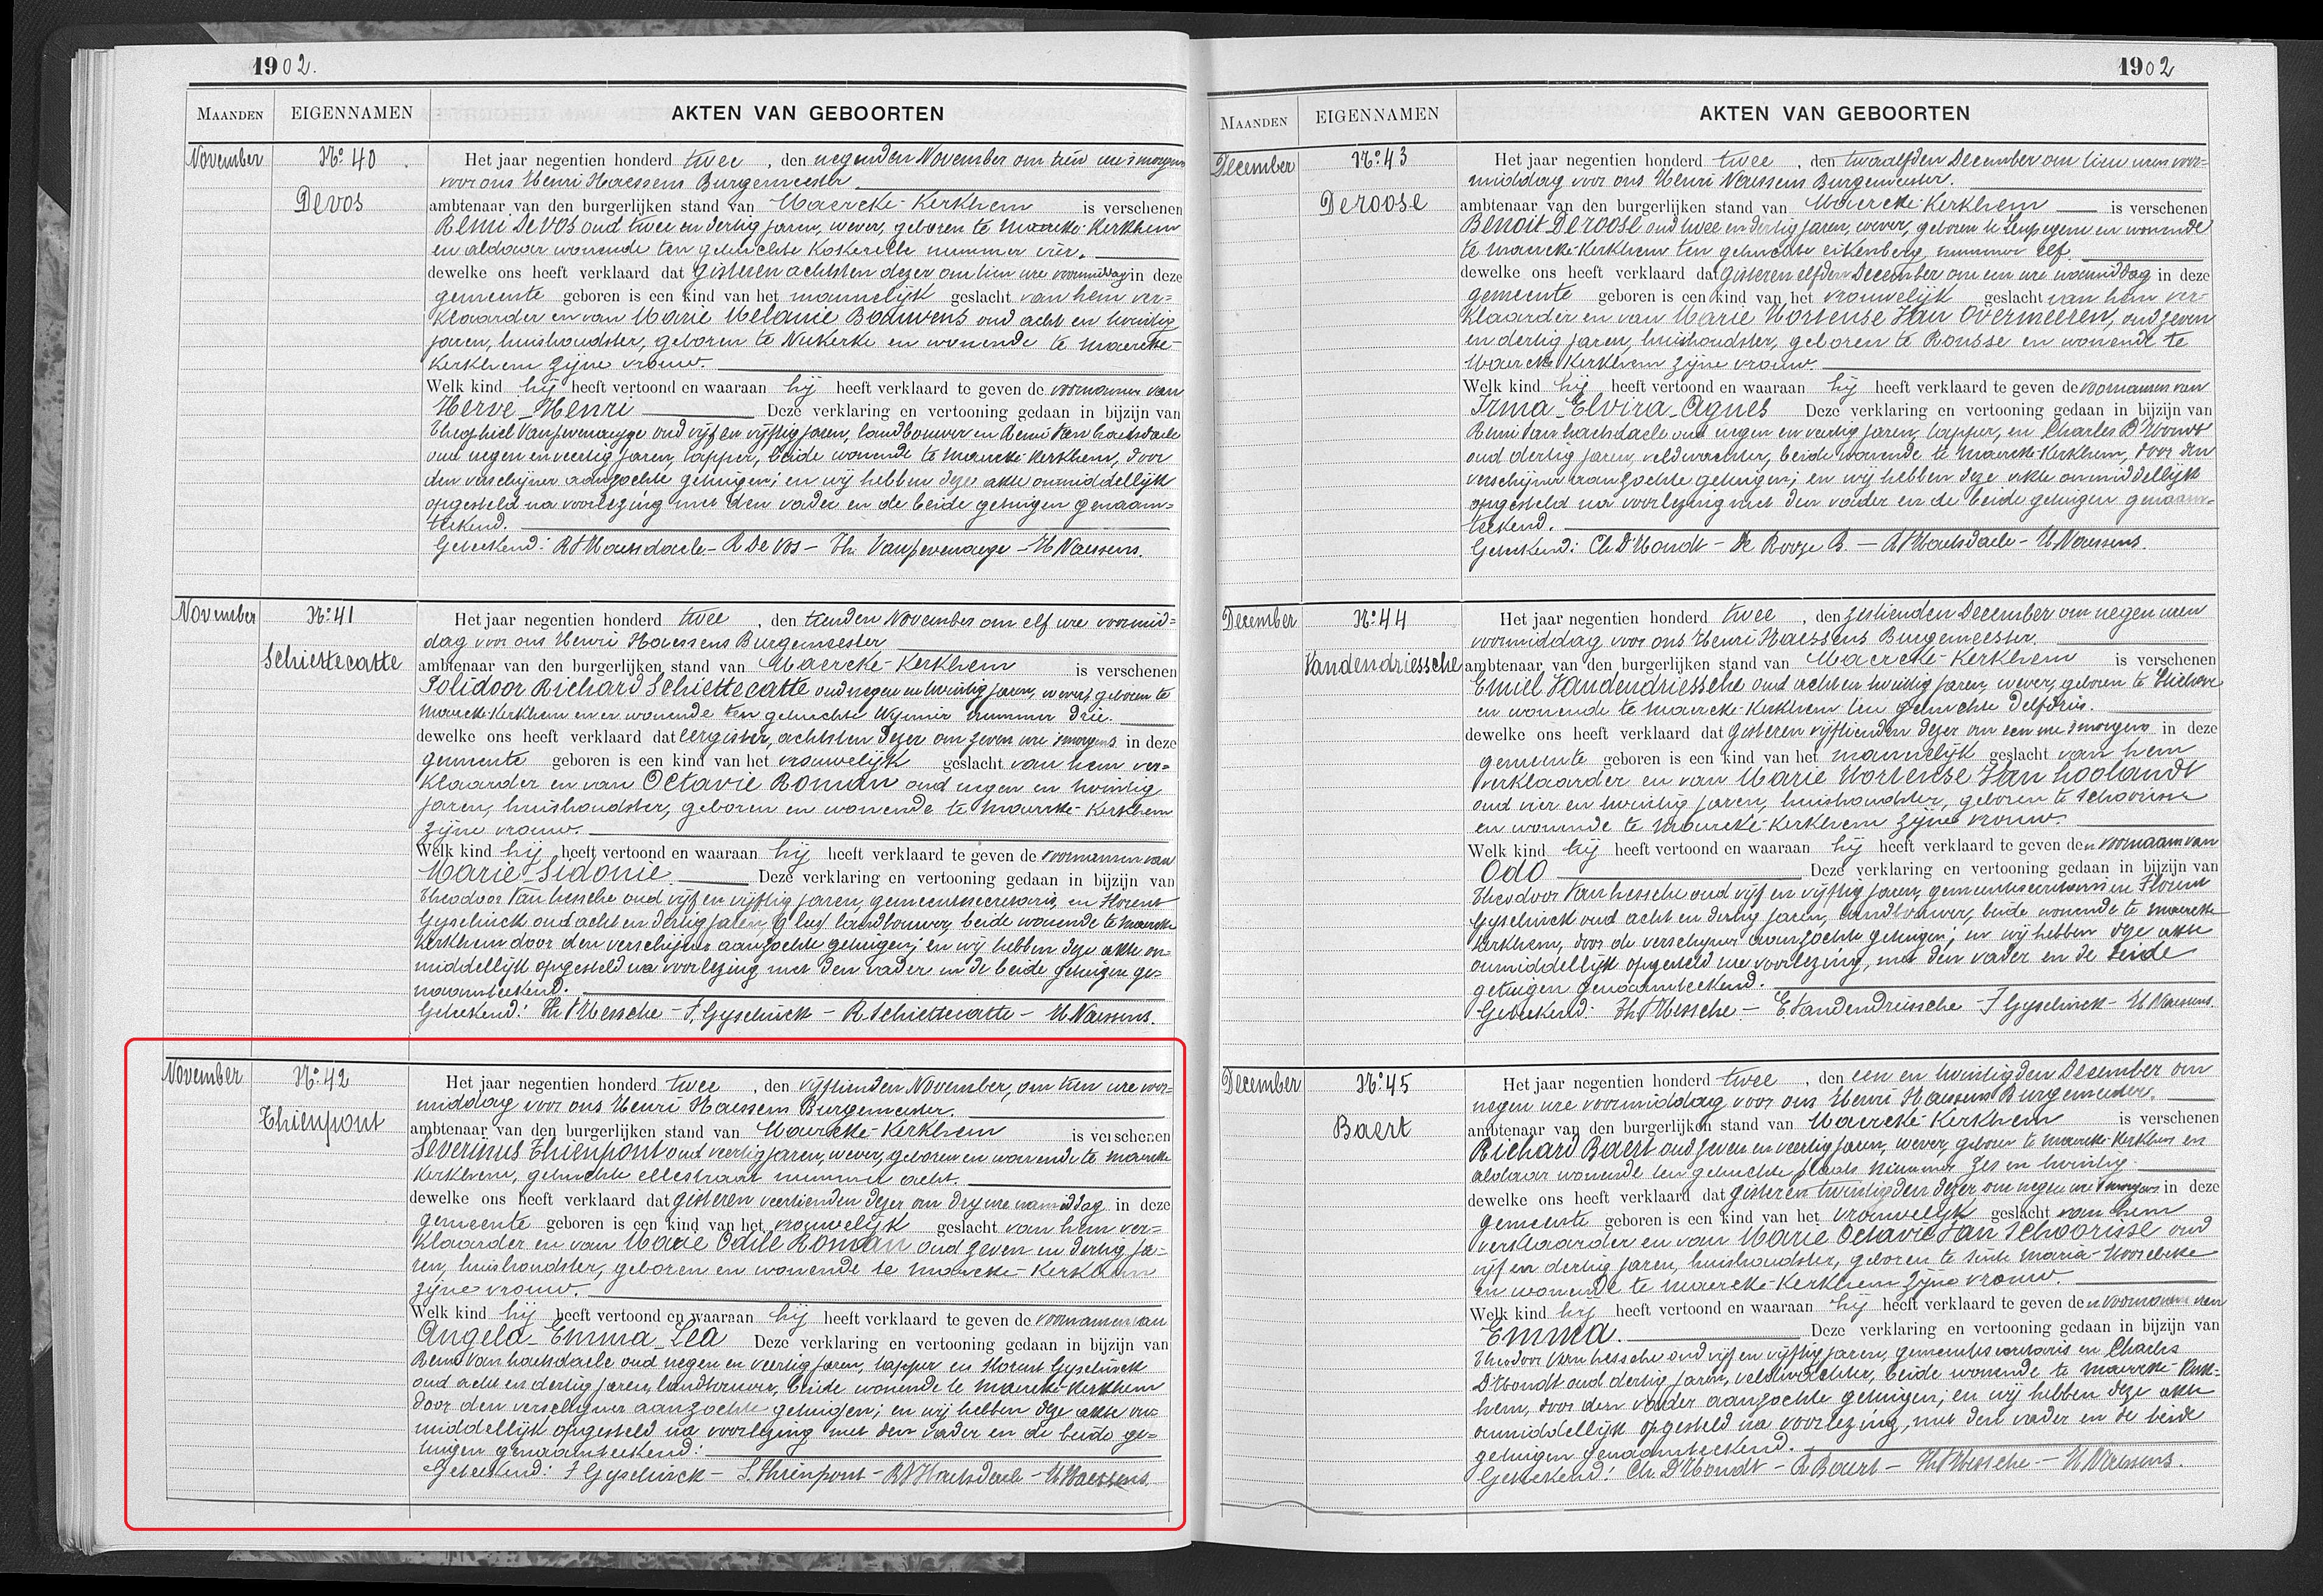 1902.
MAANDEN EIGENNAMEN AKTEN VAN GEBOORTEN
November Nº 40 Devos
Het jaar negentien honderd twee, den negenden November om tien ure 'smorgens
voor ons Henri Naessens Burgemeester
ambtenaar van den burgerlijken stand van Maercke-Kerkhem is verschenen
Remi Devos oud twee en dertig jaren, wever, geboren te Maercke-Kerkhem
en aldaar wonende ten gehuchte Kokerelle nummer vier.
dewelke ons heeft verklaard dat gisteren achtsten dezer om tien ure voormiddag in deze
gemeente geboren is een kind van het mannelijk geslacht van hem ver=
klaarder en van Marie Melanie Bauwens oud acht en twintig
jaren, huishoudster, geboren te Nukerke en wonende te Maercke-
Kerkhem zijne vrouw.
Welk kind hij heeft vertoond en waaraan hij heeft verklaard te geven de voornamen van
Herve-Henri Deze verklaring en vertooning gedaan in bijzijn van
Theophiel Vanpevenaeyge oud vijf en vijftig jaren, landbouwer en Remi Van haelsdaele
oud negen en veertig jaren, tapper, beide wonende te Maercke-Kerkhem, door
den verschijner aanzochte getuigen; en wij hebben deze akte onmiddellijk
opgesteld na voorlezing met den vader en de beide getuigen genaam=
teekend.
Geteekend: R VHaelsdaele - R De Vos - Th. Vanpevenaeyge - H Naessens.
November Nº 41 Schiettecatte
Het jaar negentien honderd twee, den tienden November om elf ure voormid=
dag voor ons Henri Naessens Burgemeester
ambtenaar van den burgerlijken stand van Maercke-Kerkhem is verschenen
Polidoor Richard Schiettecatte oud negen en twintig jaren, wever, geboren te
Maercke-Kerkhem en er wonende ten gehuchte nummer drie.
dewelke ons heeft verklaard dat eergister, achtsten dezer om zeven ure 'smorgens in deze
gemeente geboren is een kind van het vrouwelijk geslacht van hem ver=
klaarder en van Octavie Roman oud negen en twintig
jaren, huishoudster, geboren en wonende te Maercke-Kerkhem
zijne vrouw.
Welk kind hij heeft vertoond en waaraan hij heeft verklaard te geven de voornamen van
Marie-Sidonie. Deze verklaring en vertooning gedaan in bijzijn van
Theodoor Van hessche oud vijf en vijftig jaren, gemeentesecretaris, en Florent
Gyselinck oud acht en dertig jaren, landbouwer, beide wonende te Maercke
Kerkhem door den verschijner aanzochte getuigen; en wij hebben deze akte on=
middellijk opgesteld na voorlezing met den vader en de beide getuigen ge=
naamteekend.
Geteekend: Th VHessche - F. Gyselinck - R. Schiettecatte - H. Naessens.
November Nº 42 Thienpont
Het jaar negentien honderd twee, den vijftienden November, om tien ure voor=
middag voor ons Henri Naessens Burgemeester.
ambtenaar van den burgerlijken stand van Maercke-Kerkhem is verschenen
Severinus Thienpont oud veertig jaren, wever, geboren en wonende te Maercke
Kerkhem, gehuchte ellestraat nummer acht.
dewelke ons heeft verklaard dat gisteren veertienden dezer om dry ure namiddag in deze
gemeente geboren is een kind van het vrouwelijk geslacht van hem ver=
klaarder en van Marie Odile Roman oud zeven en dertig ja=
ren, huishoudster, geboren en wonende te Maercke-Kerkhem
zijne vrouw.
Welk kind hij heeft vertoond en waaraan hij heeft verklaard te geven de voornamen van
Angela-Emma-Lea Deze verklaring en vertooning gedaan in bijzijn van
Remi Van haelsdaele oud negen en veertig jaren, tapper en Florent Gyselinck
oud acht en dertig jaren, landbouwer, beide wonende te Maercke-Kerkhem
door den verschijner aanzochte getuigen; en wij hebben deze akte on=
middellijk opgesteld na voorlezing met den vader en de beide ge=
tuigen genaamteekend:
Geteekend: F Gyselinck - S. Thienpont - R VHaelsdaele - H Naessens.
1902
MAANDEN EIGENNAMEN AKTEN VAN GEBOORTEN
December Nº 43 Deroose
Het jaar negentien honderd twee, den twaalfden December om tien uren voor=
middag voor ons Henri Naessens Burgemeester.
ambtenaar van den burgerlijken stand van Maercke-Kerkhem is verschenen
Benoit Deroose oud twee en dertig jaren, wever, geboren te Leupegem en wonende
te Maercke-Kerkhem ten gehuchte eikenberg nummer elf.
dewelke ons heeft verklaard dat gisteren elfden December om een ure namiddag in deze
gemeente geboren is een kind van het vrouwelijk geslacht van hem ver-
klaarder en van Marie Hortense Van Overmeeren, oud zeven
en dertig jaren, huishoudster, geboren te Ronsse en wonende te
Maercke Kerkhem zijne vrouw.
Welk kind hij heeft vertoond en waaraan hij heeft verklaard te geven de voornamen van
Irma-Elvira-Agnes Deze verklaring en vertooning gedaan in bijzijn van
Remi Van haelsdaele oud negen en veertig jaren, tapper, en Charles D'Hondt
oud dertig jaren, veldwachter, beide wonende te Maercke-Kerkhem, door den
verschijner aanzochte getuigen; en wij hebben deze akte onmiddellijk
opgesteld na voorlezing met den vader en de beide getuigen genaam=
teekend.
Geteekend: Ch D'Hondt - De Rooze B. - R VHaelsdaele - H. Naessens.
December Nº 44 Vandendriessche
Het jaar negentien honderd twee, den zestienden December om negen uren
voormiddag voor ons Henri Naessens Burgemeester.
ambtenaar van den burgerlijken stand van Maercke-Kerkhem is verschenen
Emiel Vandendriessche oud acht en twintig jaren, wever, geboren te
en wonende te Maercke-Kerkhem ten gehuchte
dewelke ons heeft verklaard dat gisteren vijftienden dezer om een ure 'smorgens in deze
gemeente geboren is een kind van het mannelijk geslacht van hem
verklaarder en van Marie Hortense Van hoolandt
oud vier en twintig jaren, huishoudster, geboren te Schoorisse
en wonende te Maercke-Kerkhem zijne vrouw.
Welk kind hij heeft vertoond en waaraan hij heeft verklaard te geven den voornaam van
Odo Deze verklaring en vertooning gedaan in bijzijn van
Theodoor Van hessche oud vijf en vijftig jaren, gemeentesecretaris en Florent
Gyselinck oud acht en dertig jaren, landbouwer, beide wonende te Maercke
Kerkhem, door de verschijner aanzochte getuigen; en wij hebben deze akte
onmiddellijk opgesteld na voorlezing, met den vader en de beide
getuigen genaamteekend.
Geteekend: Th VHessche - E. Vandendriessche - F Gyselinck - H Naessens.
December Nº 45 Baert
Het jaar negentien honderd twee, den een en twintigden December om
negen ure voormiddag voor ons Henri Naessens Burgemeester.
ambtenaar van den burgerlijken stand van Maercke-Kerkhem is verschenen
Richard Baert oud zeven en veertig jaren, wever, geboren te Maercke-Kerkhem en
aldaar wonende ten gehuchte plaats nummer zes en twintig.
dewelke ons heeft verklaard dat gisteren twintigden dezer om negen ure 'smorgens in deze
gemeente geboren is een kind van het vrouwelijk geslacht van hem
verklaarder en van Marie Octavie Van Schoorisse oud
vijf en dertig jaren, huishoudster, geboren te Sinte Maria-Hoorebeke
en wonende te Maercke-Kerkhem zijne vrouw.
Welk kind hij heeft vertoond en waaraan hij heeft verklaard te geven den voornamen van
Emma. Deze verklaring en vertooning gedaan in bijzijn van
Theodoor Van hessche oud vijf en vijftig jaren, gemeentesecretaris en Charles
D'Hondt oud dertig jaren, veldwachter, beide wonende te Maercke-Kerk=
hem, door den vader aanzochte getuigen; en wij hebben deze akte
onmiddellijk opgesteld na voorlezing, met den vader en de beide
getuigen genaamteekend.
Geteekend: Ch D'Hondt - R Baert - Th VHessche - H. Naessens.